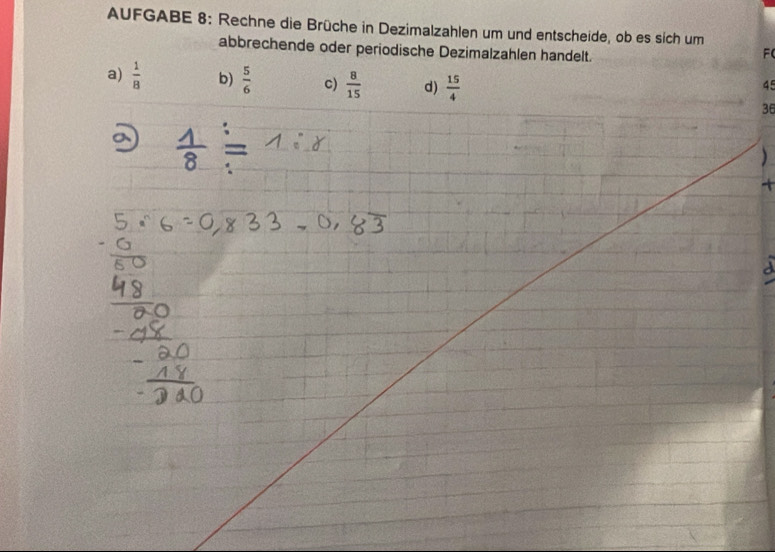 AUFGABE 8: Rechne die Brüche in Dezimalzahlen um und entscheide, ob es sich um
abbrechende oder periodische Dezimalzahlen handelt.
a) 1/8 b) 5/6 c) 8/15 d) 15/4
a) 1/8 = 1:8
5:6=0,833 - 0,83̅
- 0
50
48
20
- 18
- 20
18
- 220
F
45
36
)
+
d)